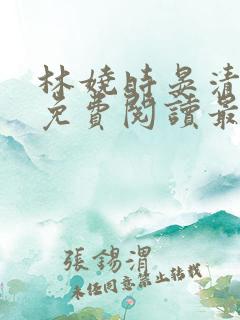 林嬈時吳清
免費閱讀最
張錫渭
未经同意禁止转载